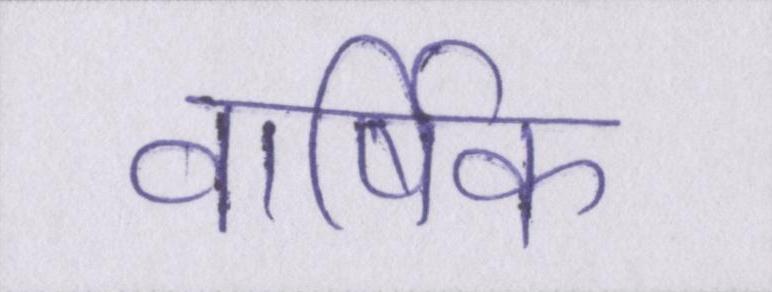 वार्षिक